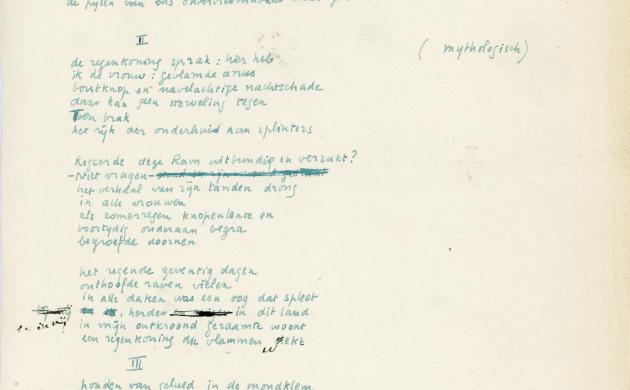 de pijlen van ons
II
( mythologisch)
de regenkoning sprak: hier heb
ik de vrouw: gevlamde anus
borstknop en navelachtige nachtschade
daar kan geen sterveling tegen
Toen brak
het rijk der onderhuid aan splinters
Regeerde deze Ram uitbundig en verrukt?
- Niet vragen -
het verhaal van zijn tanden drong
in alle vrouwen
als zomerregen knopenlente en
voortijdig onderaan begra
begroefde doornen
het regende zeventig dagen
onthoofde raven vielen
in alle daken was een oog dat spleet
, herder in dit land
en in mijn ontkroond geraamte woont
een regenkoning die vlammen
III
honden van geluid in de mondklem